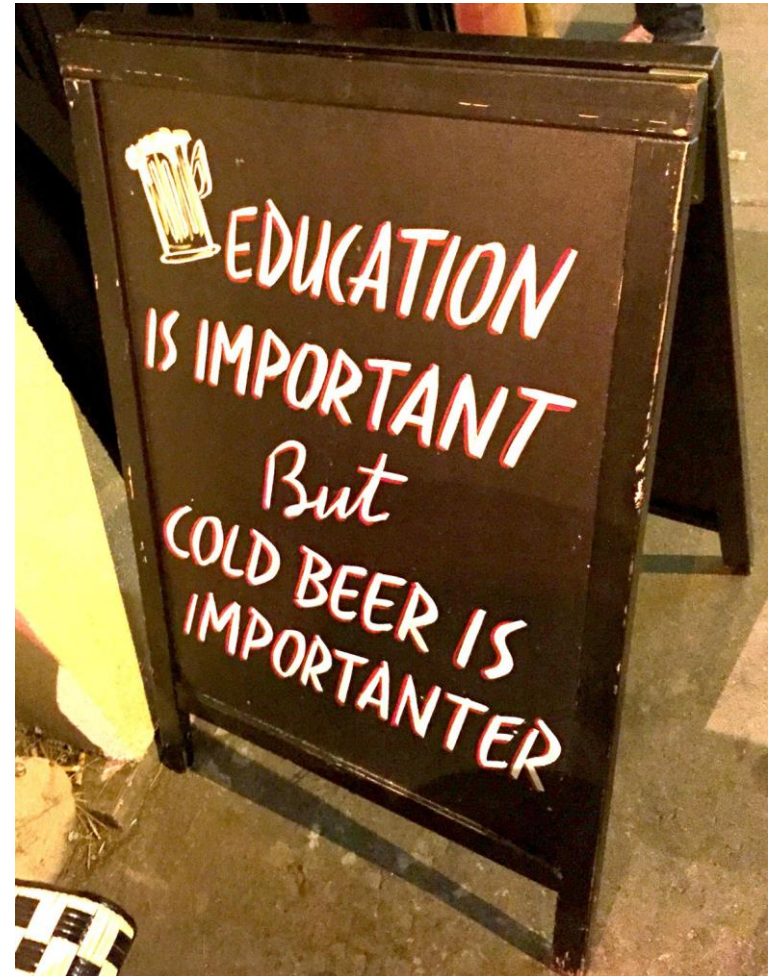 EDUCATION
IS IMPORTANT
But
COLD BEER IS
IMPORTANTER